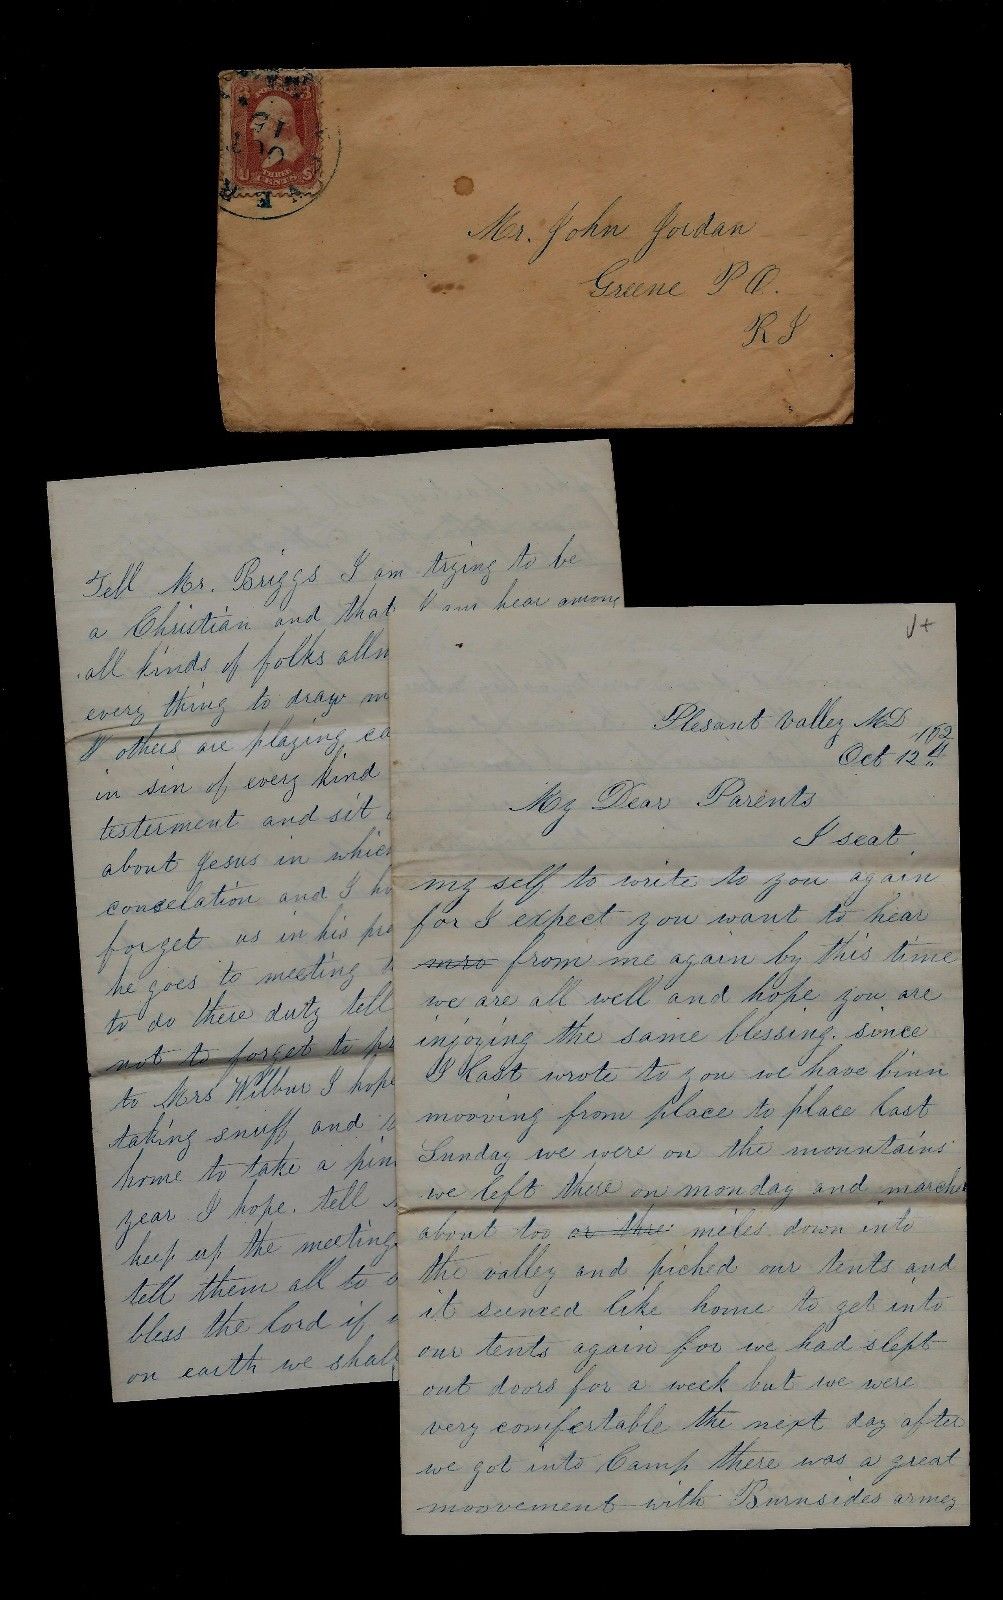 THREE
CENTS
U S
OCT
15
Mr. John Jordan
Greene P O.
R I
Tell Mr. Briggs I am trying to be
a Christian and that I am hear among
all kinds of folks allm
every thing to draw m
others are playing ca
in sin of every kind
testerment and sit
about Jesus in which
concelation and I ho
forget us in his pra
he goes to meeting
to do there duty tell
not to forget to pr
to Mrs Wilbur I hope
taking snuff and
home to take a pin
year I hope. tell
keep up the meeting
tell them all to
bless the lord if
on earth we shall
Plesant valley MD
Oct 12th
My Dear Parents
I seat
my self to write to you again
for I expect you want to hear
mro from me again by this time
we are all well and hope you are
injoying the same blessing. since
I last wrote to you we have binn
mooving from place to place last
Sunday we were on the mountains
we left there on monday and march
about too or thre miles down into
the valley and piched our tents and
it seemed like home to get into
our tents again for we had slept
out doors for a week but we were
very comfertable the next day after
we got into Camp there was a great
moovement with Burnsides armey